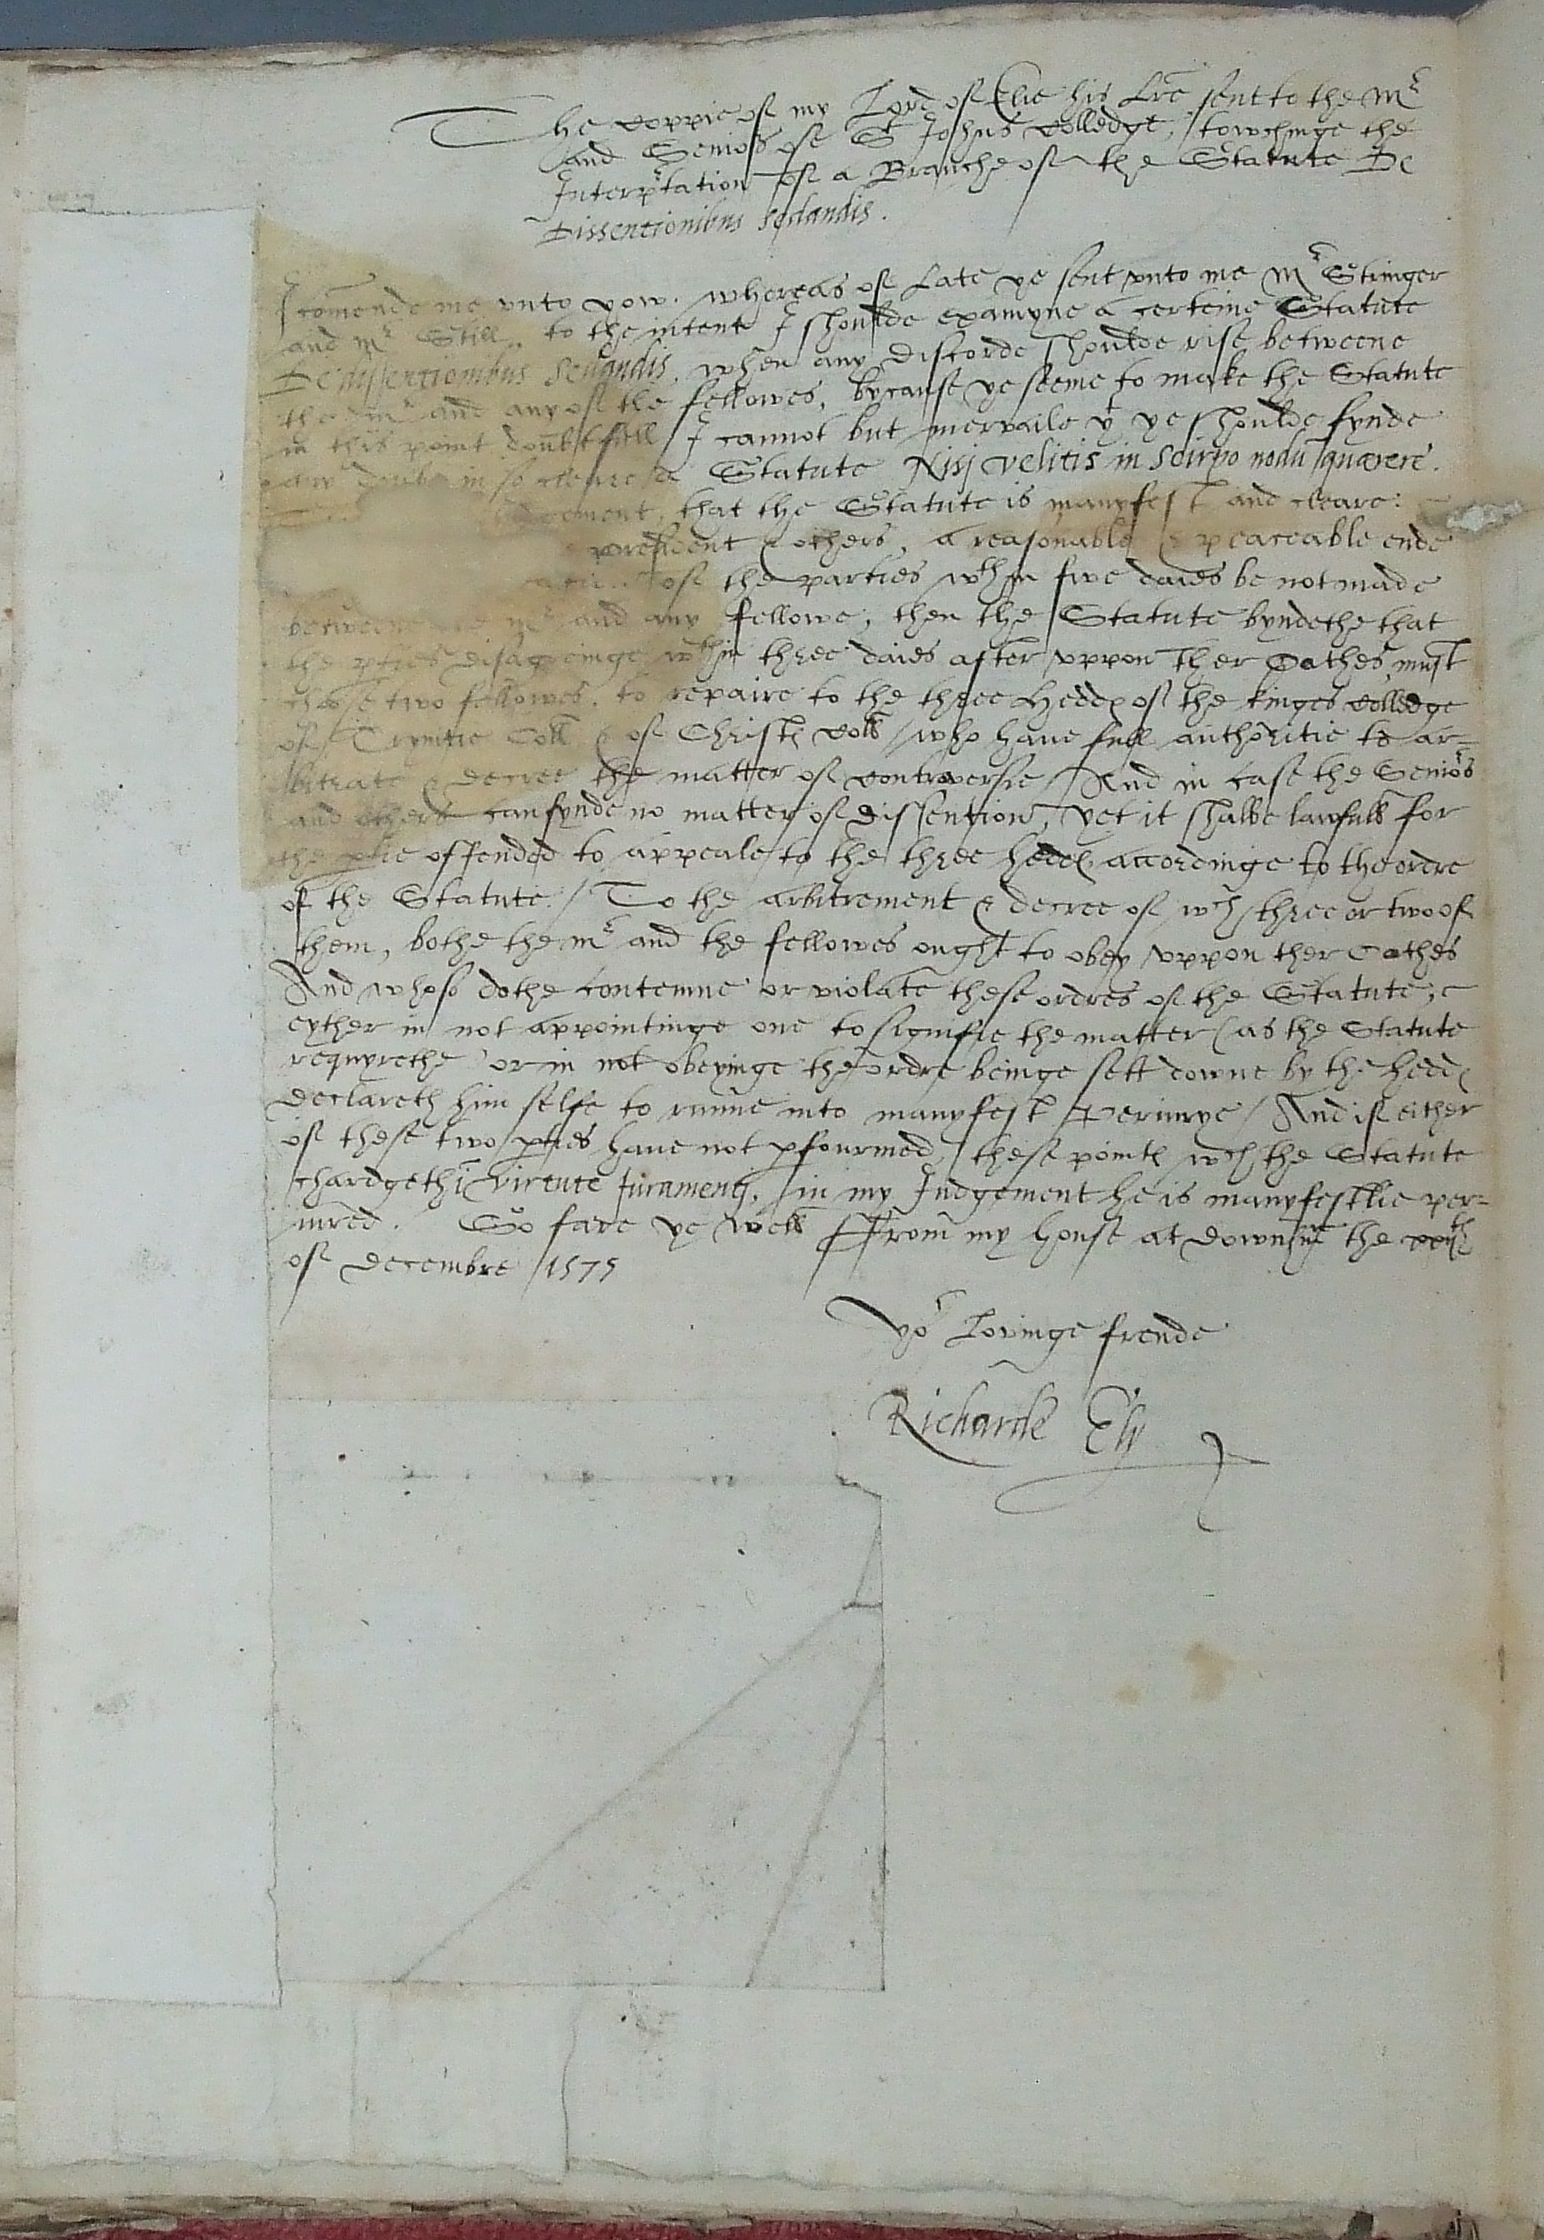 The coppie of my Lord of Elie his Lre sent to the Mr
and Seniors of St Johns Colledge, towchinge the
Interprtation of a Branche of the Statute De
Dissentionibus sedandis.
I comende me vnto yow. whereas of Late ye sent vnto me Mr Stringer
and mr Still, to the intent I shoulde examyne a certeine Statute
De dissentionibus Sedandis, when any discorde shoulde rise betweene
the mr and any of the fellowes, bycause ye seeme to make the Statute
in this point doubtfull / I cannot but mervaile yt ye shoulde fynde
any doubt in so cleare a Statute Nisj velitis in scirpo nodu quærere.
that the Statute is manyfest and cleare:
president & others, a reasonable & peaceable ende
of the parties wthin fiue daies be not made
betweene the mr and any fellowe, then the Statute byndethe that
the pties disagreinge wthin three daies after vppon ther Oathes must
chose two fellowes, to repaire to the three Hedds of the kinges Colledge
of Trynitie Coll & of Christs Coll / who haue full authoritie to ar=
bitrate & decree the matter of controversie / And in case the Seniors
and others can fynde no matter of dissention, yet it shalbe lawfull for
the ptie offended to appeale to the three hedds accordinge to the ordre
of the Statute. / To the arbitrement & decree of wch three or two of
them, bothe the mr and the fellowes ought to obey vppon ther Oathes
And whoso dothe contemne or violate these ordres of the Statute,
eyther in not appointinge one to signifie the matter (as the Statute
requyrethe) or in not obeyinge the ordre beinge sett downe by the hedds
declareth him selfe to runne into manyfest Periurye / And if either
of these two pties haue not pfourmed these points wch the Statute
chardgeth virtute juramentj, in my Iudgement he is manyfestlie per=
iured. So fare ye well ffrom my house at Downham the
of decembre 1575
Yor Lovinge frende
Richarde Ely